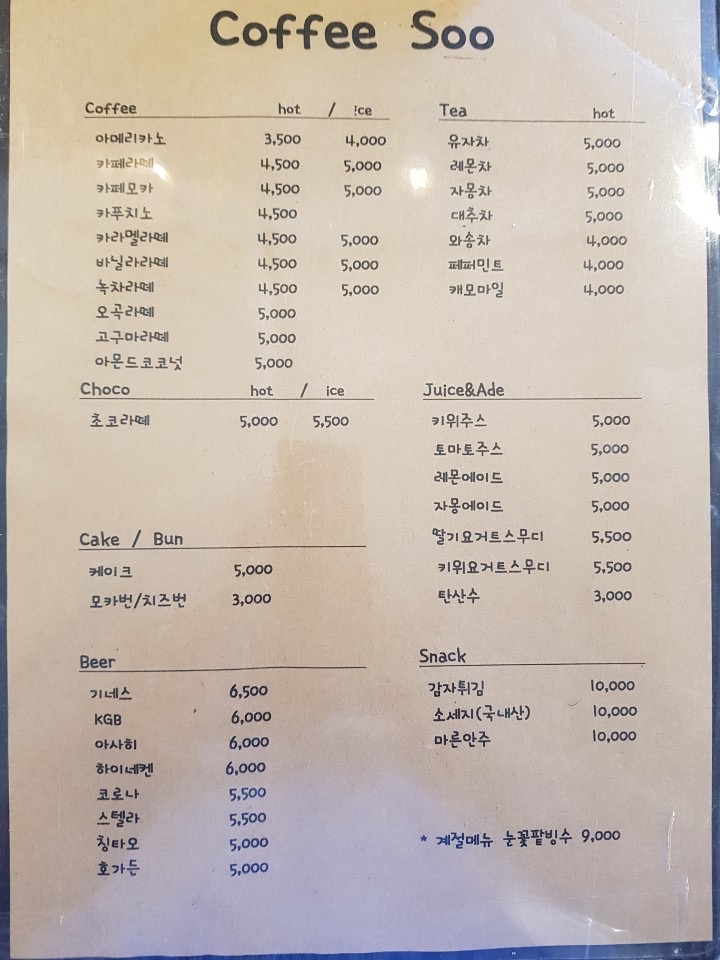 Coffee Soo
Coffee hot / ice
아메리카노 3,500 4,000
카페라떼 4,500 5,000
카페모카 4,500 5,000
카푸치노 4,500
카라멜라떼 4,500 5,000
바닐라라떼 4,500 5,000
녹차라떼 4,500 5,000
오곡라떼 5,000
고구마라떼 5,000
아몬드코코넛 5,000
Tea hot
유자차 5,000
레몬차 5,000
자몽차 5,000
대추차 5,000
와송차 4,000
페퍼민트 4,000
캐모마일 4,000
Choco hot / ice
초코라떼 5,000 5,500
Juice&Ade
키위주스 5,000
토마토주스 5,000
레몬에이드 5,000
자몽에이드 5,000
딸기요거트스무디 5,500
키위요거트스무디 5,500
탄산수 3,000
Cake / Bun
케이크 5,000
모카번/치즈번 3,000
Beer
기네스 6,500
KGB 6,000
아사히 6,000
하이네켄 6,000
코로나 5,500
스텔라 5,500
칭타오 5,000
호가든 5,000
Snack
감자튀김 10,000
소세지(국내산) 10,000
마른안주 10,000
* 계절메뉴 눈꽃팥빙수 9,000